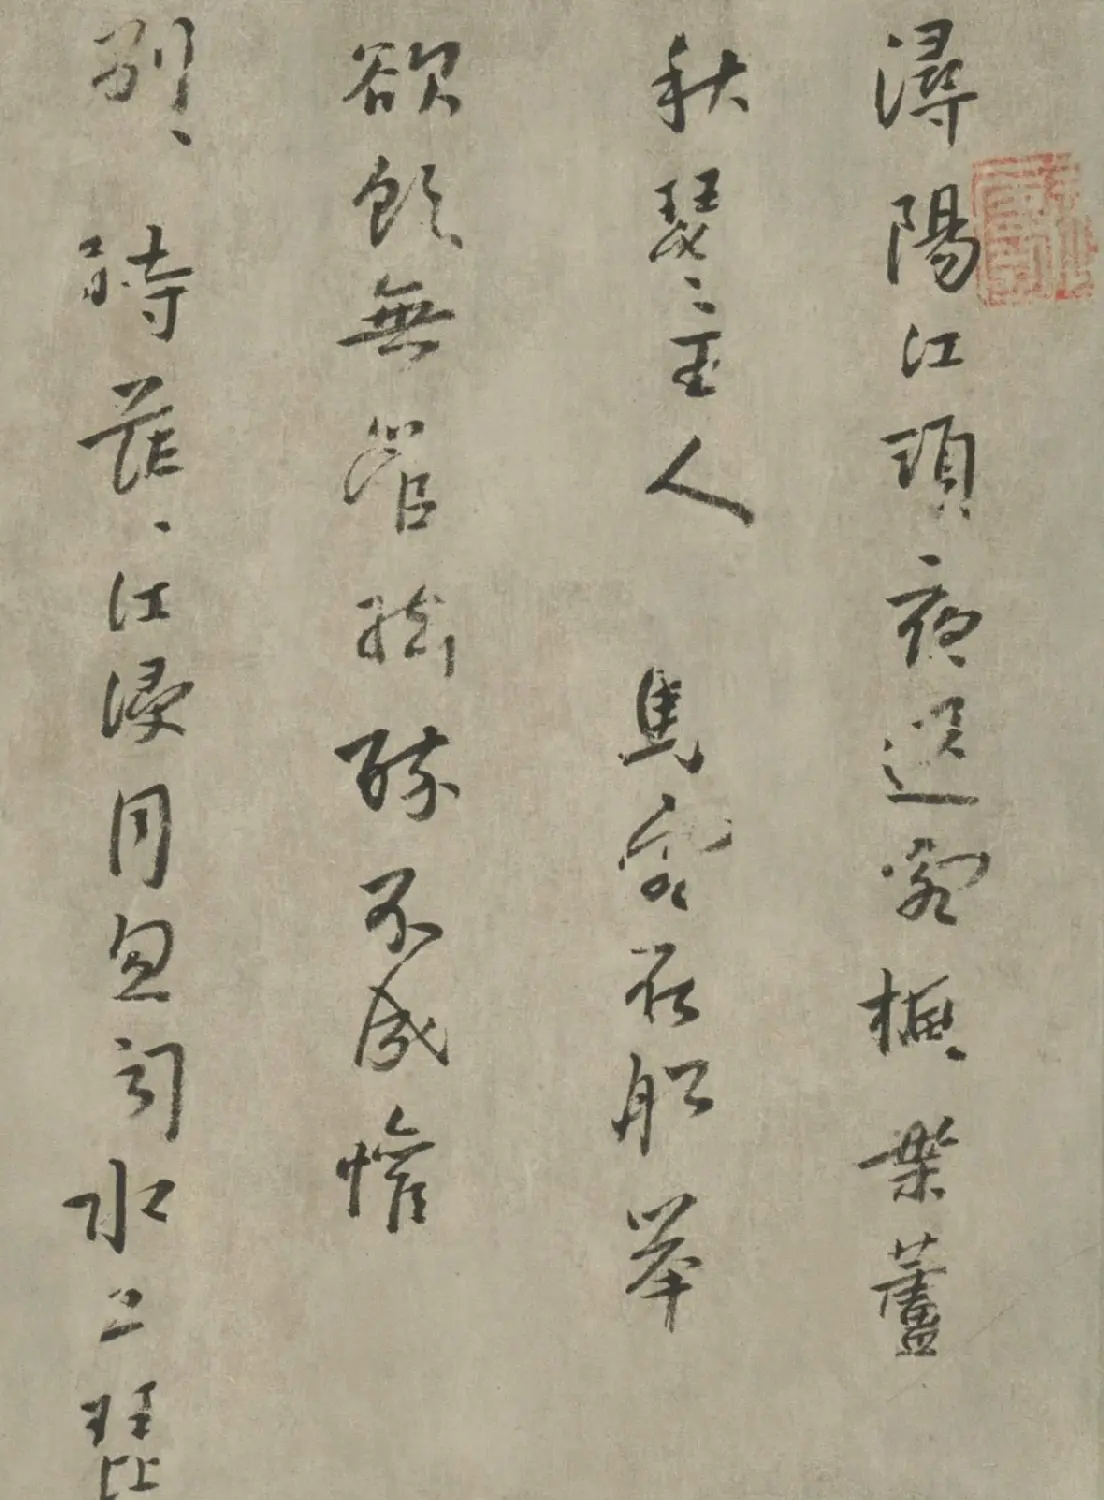 潯陽江頭夜送客楓葉蘆
秋瑟〻主人馬客在船舉
欲飲無管絃醉不成懽
別〻時茫〻江浸月忽聞水上琵